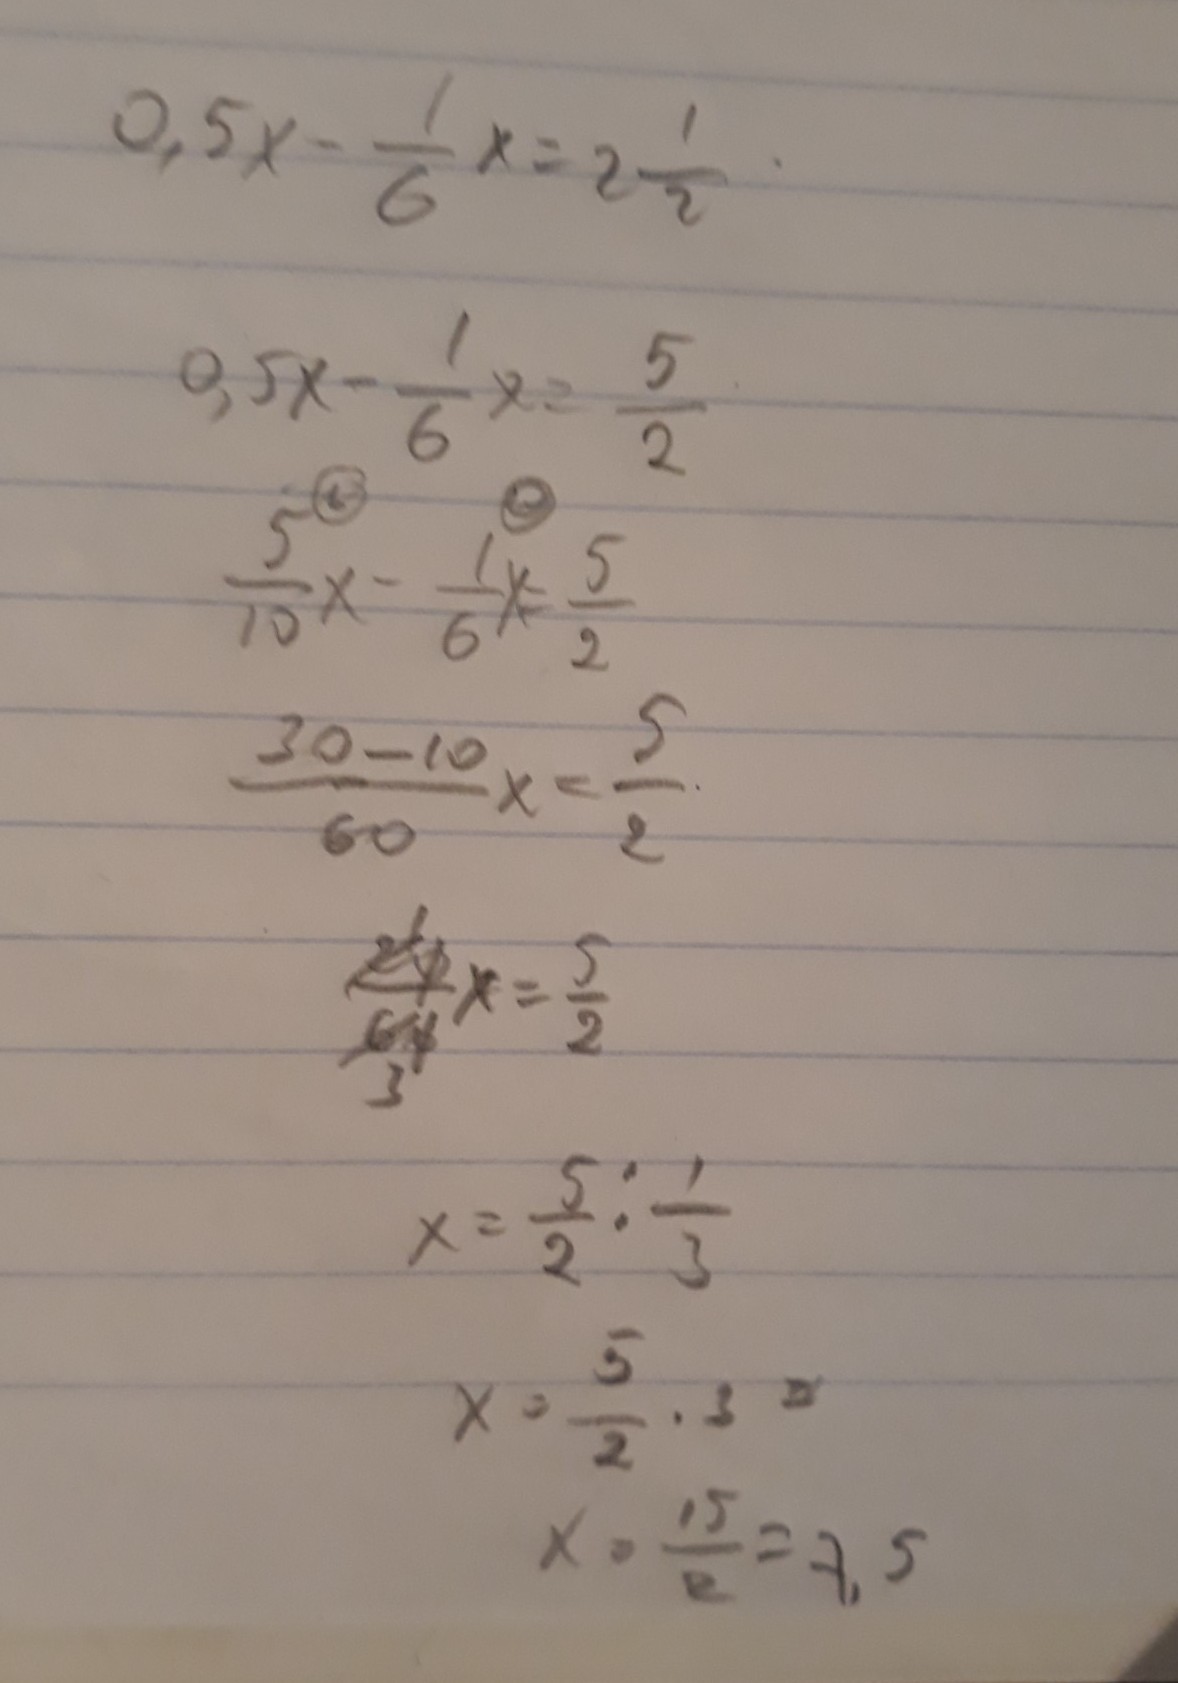 0,5x - 1/6 x = 2 1/2
0,5x - 1/6 x = 5/2
5/10 x - 1/6 x = 5/2
30-10/60 x = 5/2
1
20/60 x = 5/2
3
x = 5/2 : 1/3
x = 5/2 · 3 =
x = 15/2 = 7,5